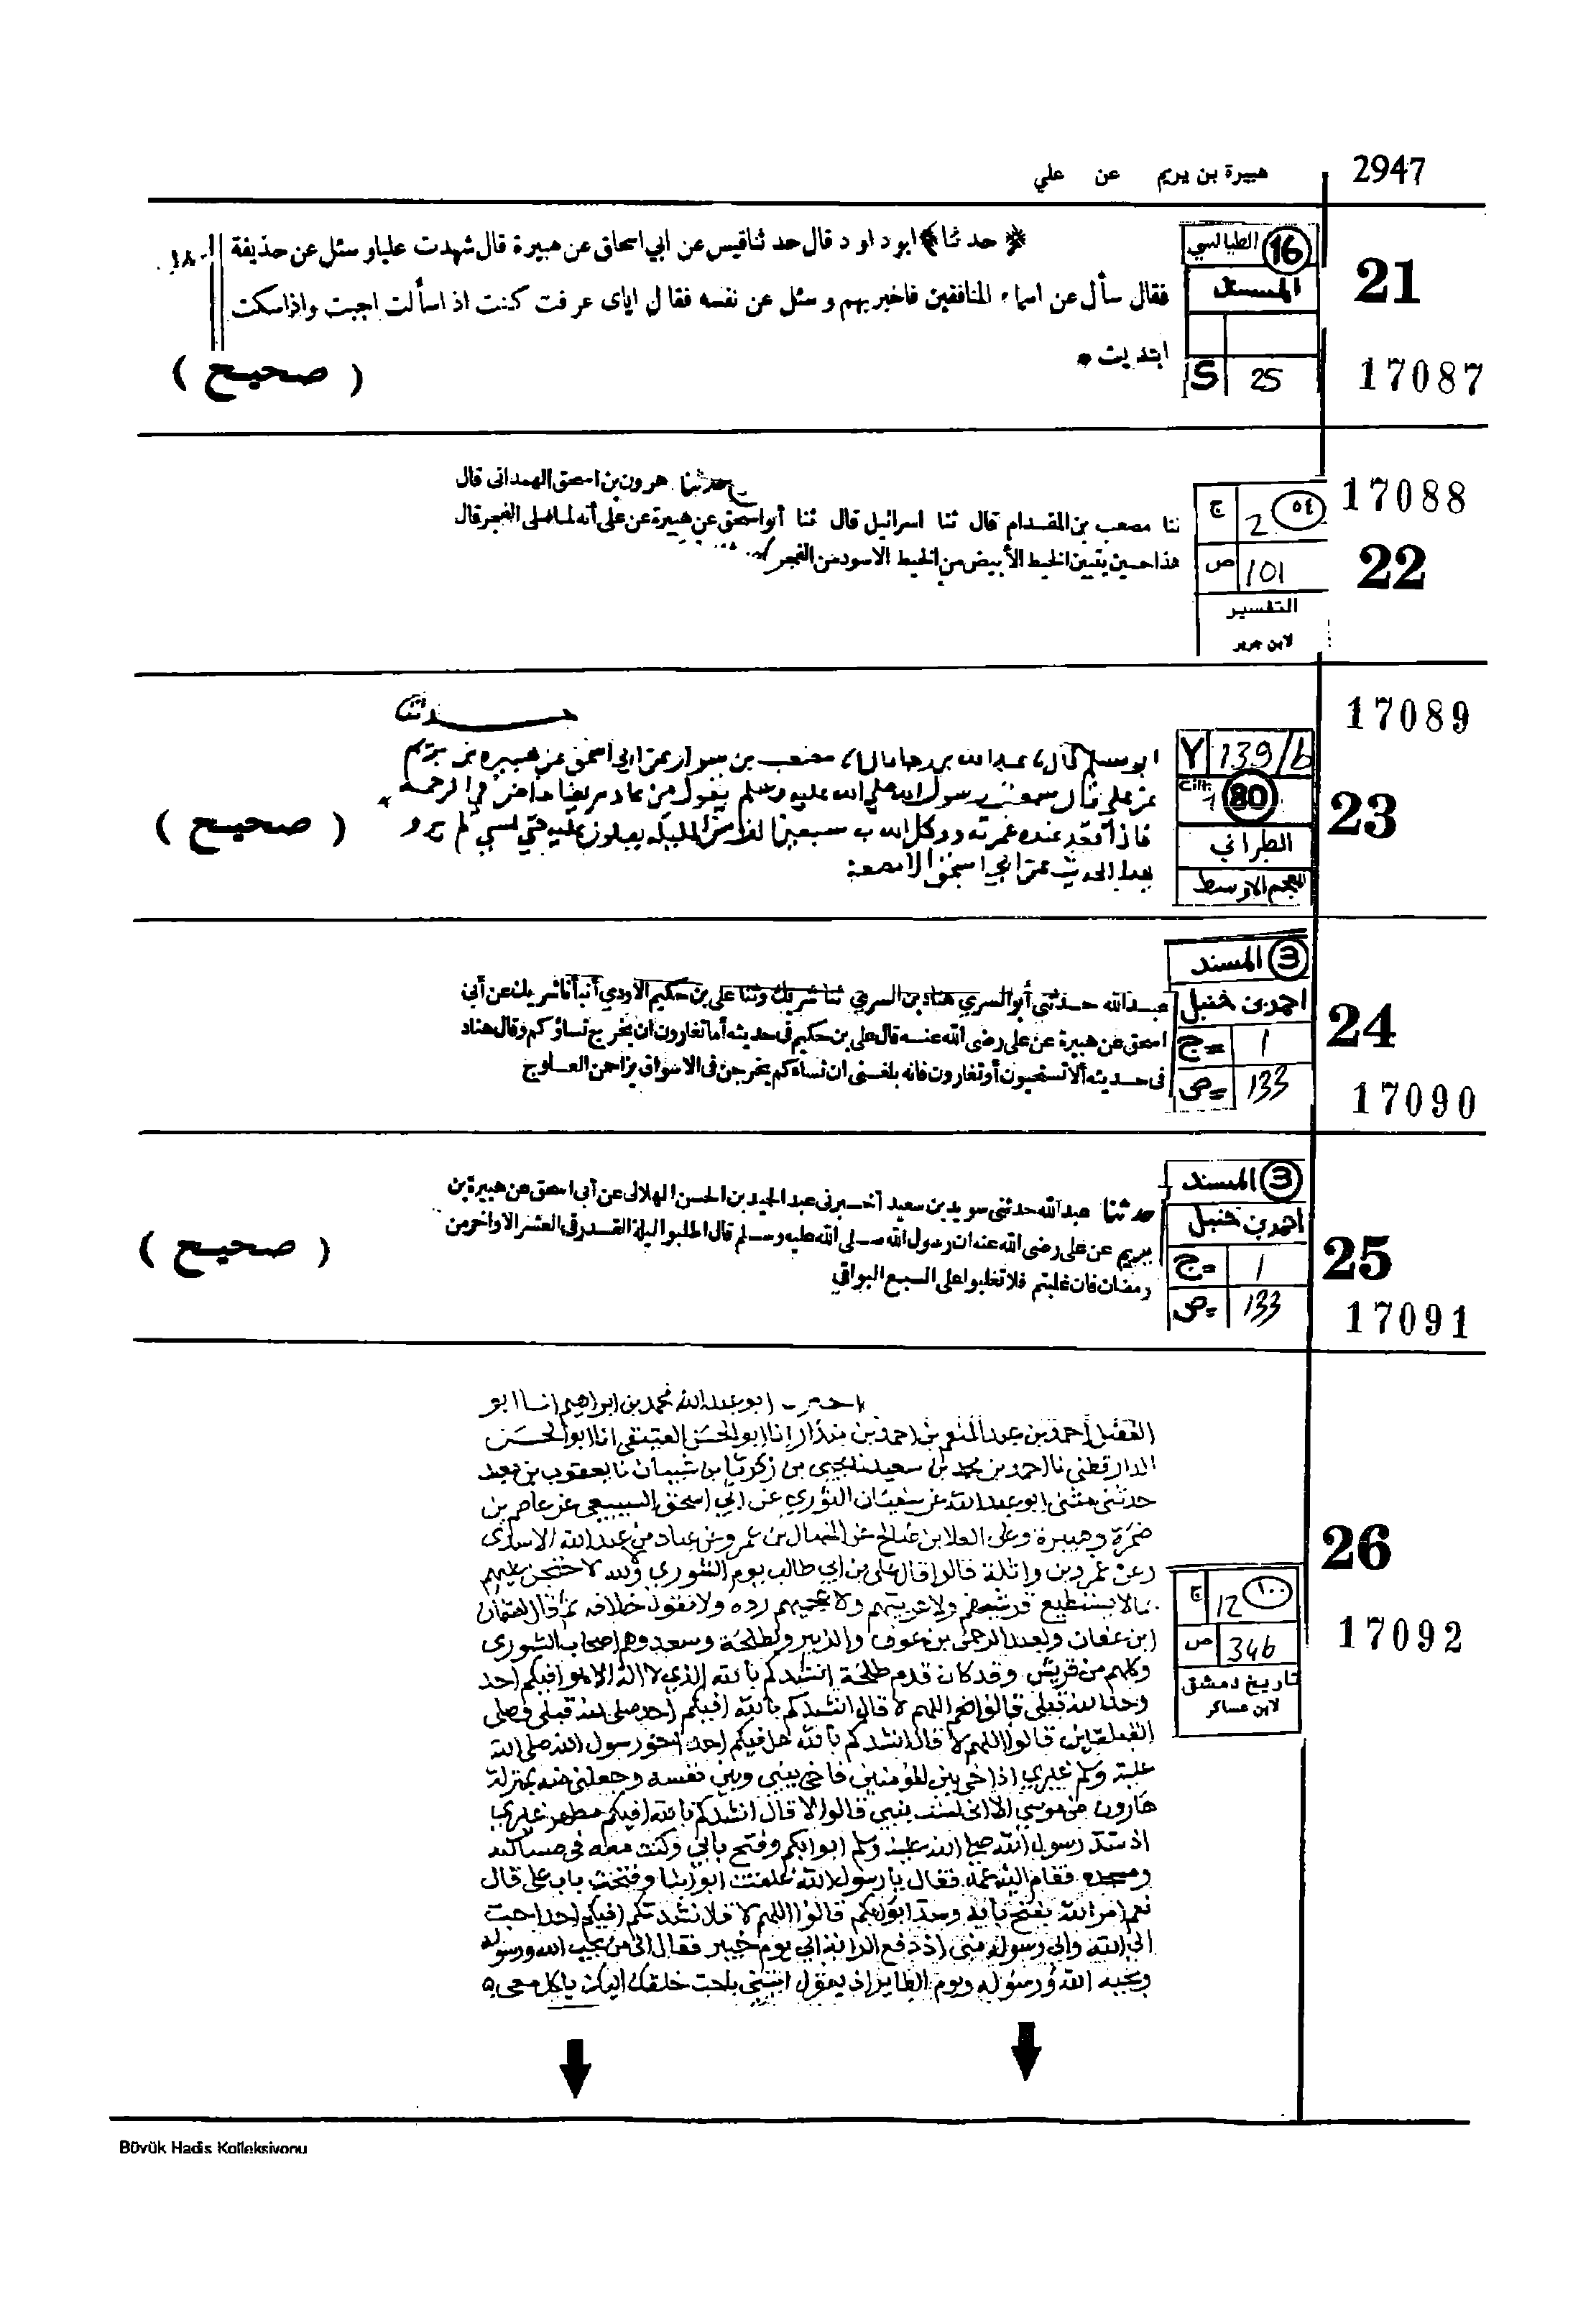 هبيرة بن يريم عن علي
2947
﴿ حدثنا ﴾ ابو داود قال حدثنا قيس عن ابي اسحاق عن هبيرة قال شهدت عليا وسئل عن حذيفة
فقال سأل عن اسماء المنافقين فاخبر بهم وسئل عن نفسه فقال اياى عرفت كنت اذا سألت اجبت واذا سكت
ابتديت *
( صحيح )
الطيالسي 16
المسند
S 25
21
17087
حدثنا هرون بن اسحق الهمدانى قال
ثنا مصعب بن المقدام قال ثنا اسرائيل قال ثنا أبو اسحق عن هبيرة عن على أنه لما صلى الفجر قال
هذا حين يتبين الخيط الأبيض من الخيط الاسود من الفجر
ج 2 ٥٤
ص 101
التفسير
لابن جرير
17088
22
17089
حدثنا
ابو مسلم قال
عن علي قال سمعت رسول الله صلى الله عليه وسلم يقول من عاد مريضا خاض في الرحمة
فاذا قعد عنده غمرته ووكل الله به سبعين الف من الملائكة يصلون عليه حتى يمسي لم يرو
هذا الحديث عن ابي اسحق الا مصعب
( صحيح )
Y 139/b
Cilt: 1 80
الطبراني
المعجم الاوسط
23
3 المسند
احمد بن حنبل
ج= 1
ص= 133
عبد الله حدثنى أبو السرى هناد بن السرى ثنا شريك وثنا على بن حكيم الاودي أنبأنا شريك عن أبي
اسحق عن هبيرة عن على رضى الله عنه قال على بن حكيم فى حديثه أما تغارون ان يخرج نساؤكم وقال هناد
فى حديثه ألا تستحيون أو تغارون فانه بلغنى ان نساءكم يخرجن فى الاسواق يزاحمن العلوج
24
17090
3 المسند
احمد بن حنبل
ج= 1
ص= 133
حدثنا عبد الله حدثنى سويد بن سعيد أخبرنى عبد الحميد بن الحسن الهلالى عن أبى اسحق عن هبيرة بن
يريم عن على رضى الله عنه ان رسول الله صلى الله عليه وسلم قال اطلبوا ليلة القدر فى العشر الاواخر من
رمضان فان غلبتم فلا تغلبوا على السبع البواقي
( صحيح )
25
17091
ابو عبد الله محمد بن ابراهيم انا ابو
الفضل احمد بن عبد المنعم بن احمد بن بندار انا ابو الحسن العتيقي انا ابو الحسن
الدارقطني نا احمد بن محمد بن سعيد نا يحيى بن زكريا بن شيبان نا يعقوب بن معبد
حدثني مثنى ابو عبد الله عن سفيان الثوري عن ابي اسحق السبيعي عن عاصم بن
ضمرة وهبيرة وعن العلا بن صالح عن المنهال بن عمرو عن عباد بن عبد الله الاسدى
وعن عمرو بن واثلة قالوا قال على بن ابي طالب يوم الشورى والله لاحتجن عليهم
بما لا يستطيع قرشيهم ولا عربيهم ولا عجميهم رده ولا يقول خلافه ثم قال لعثمان
ابن عفان ولعبد الرحمن بن عوف والزبير ولطلحة وسعد وهم اصحاب الشورى
وكلهم من قريش وقد كان قدم طلحة انشدكم بالله الذي لا اله الا هو افيكم احد
وحد الله قبلي قالوا اللهم لا قال انشدكم بالله افيكم احد صلى لله قبلي وصلى
القبلتين قالوا اللهم لا قال انشدكم بالله هل فيكم احد اخو رسول الله صلى الله
عليه وسلم غيري اذ اخى بين المؤمنين فاخى بيني وبين نفسه وجعلني منه بمنزلة
هارون من موسى الا اني لست بنبي قالوا لا قال انشدكم بالله افيكم مطهر غيري
اذ سد رسول الله صلى الله عليه وسلم ابوابكم وفتح بابي وكنت معه في مساكنه
ومسجده فقام اليه عمه فقال يا رسول الله غلقت ابوابنا وفتحت باب على قال
نعم امر الله بفتح بابه وسد ابوابكم قالوا اللهم لا قال نشدتكم افيكم احد احب
الى الله والى رسوله مني اذ دفع الراية الي يوم خيبر فقال الى من يحب الله ورسوله
ويحبه الله ورسوله ويوم الطاير اذ يقول ائتني باحب خلقك اليك ياكل معي
26
ج 12 ١٠٠
ص 346
تاريخ دمشق
لابن عساكر
17092
Büyük Hadis Kolleksiyonu